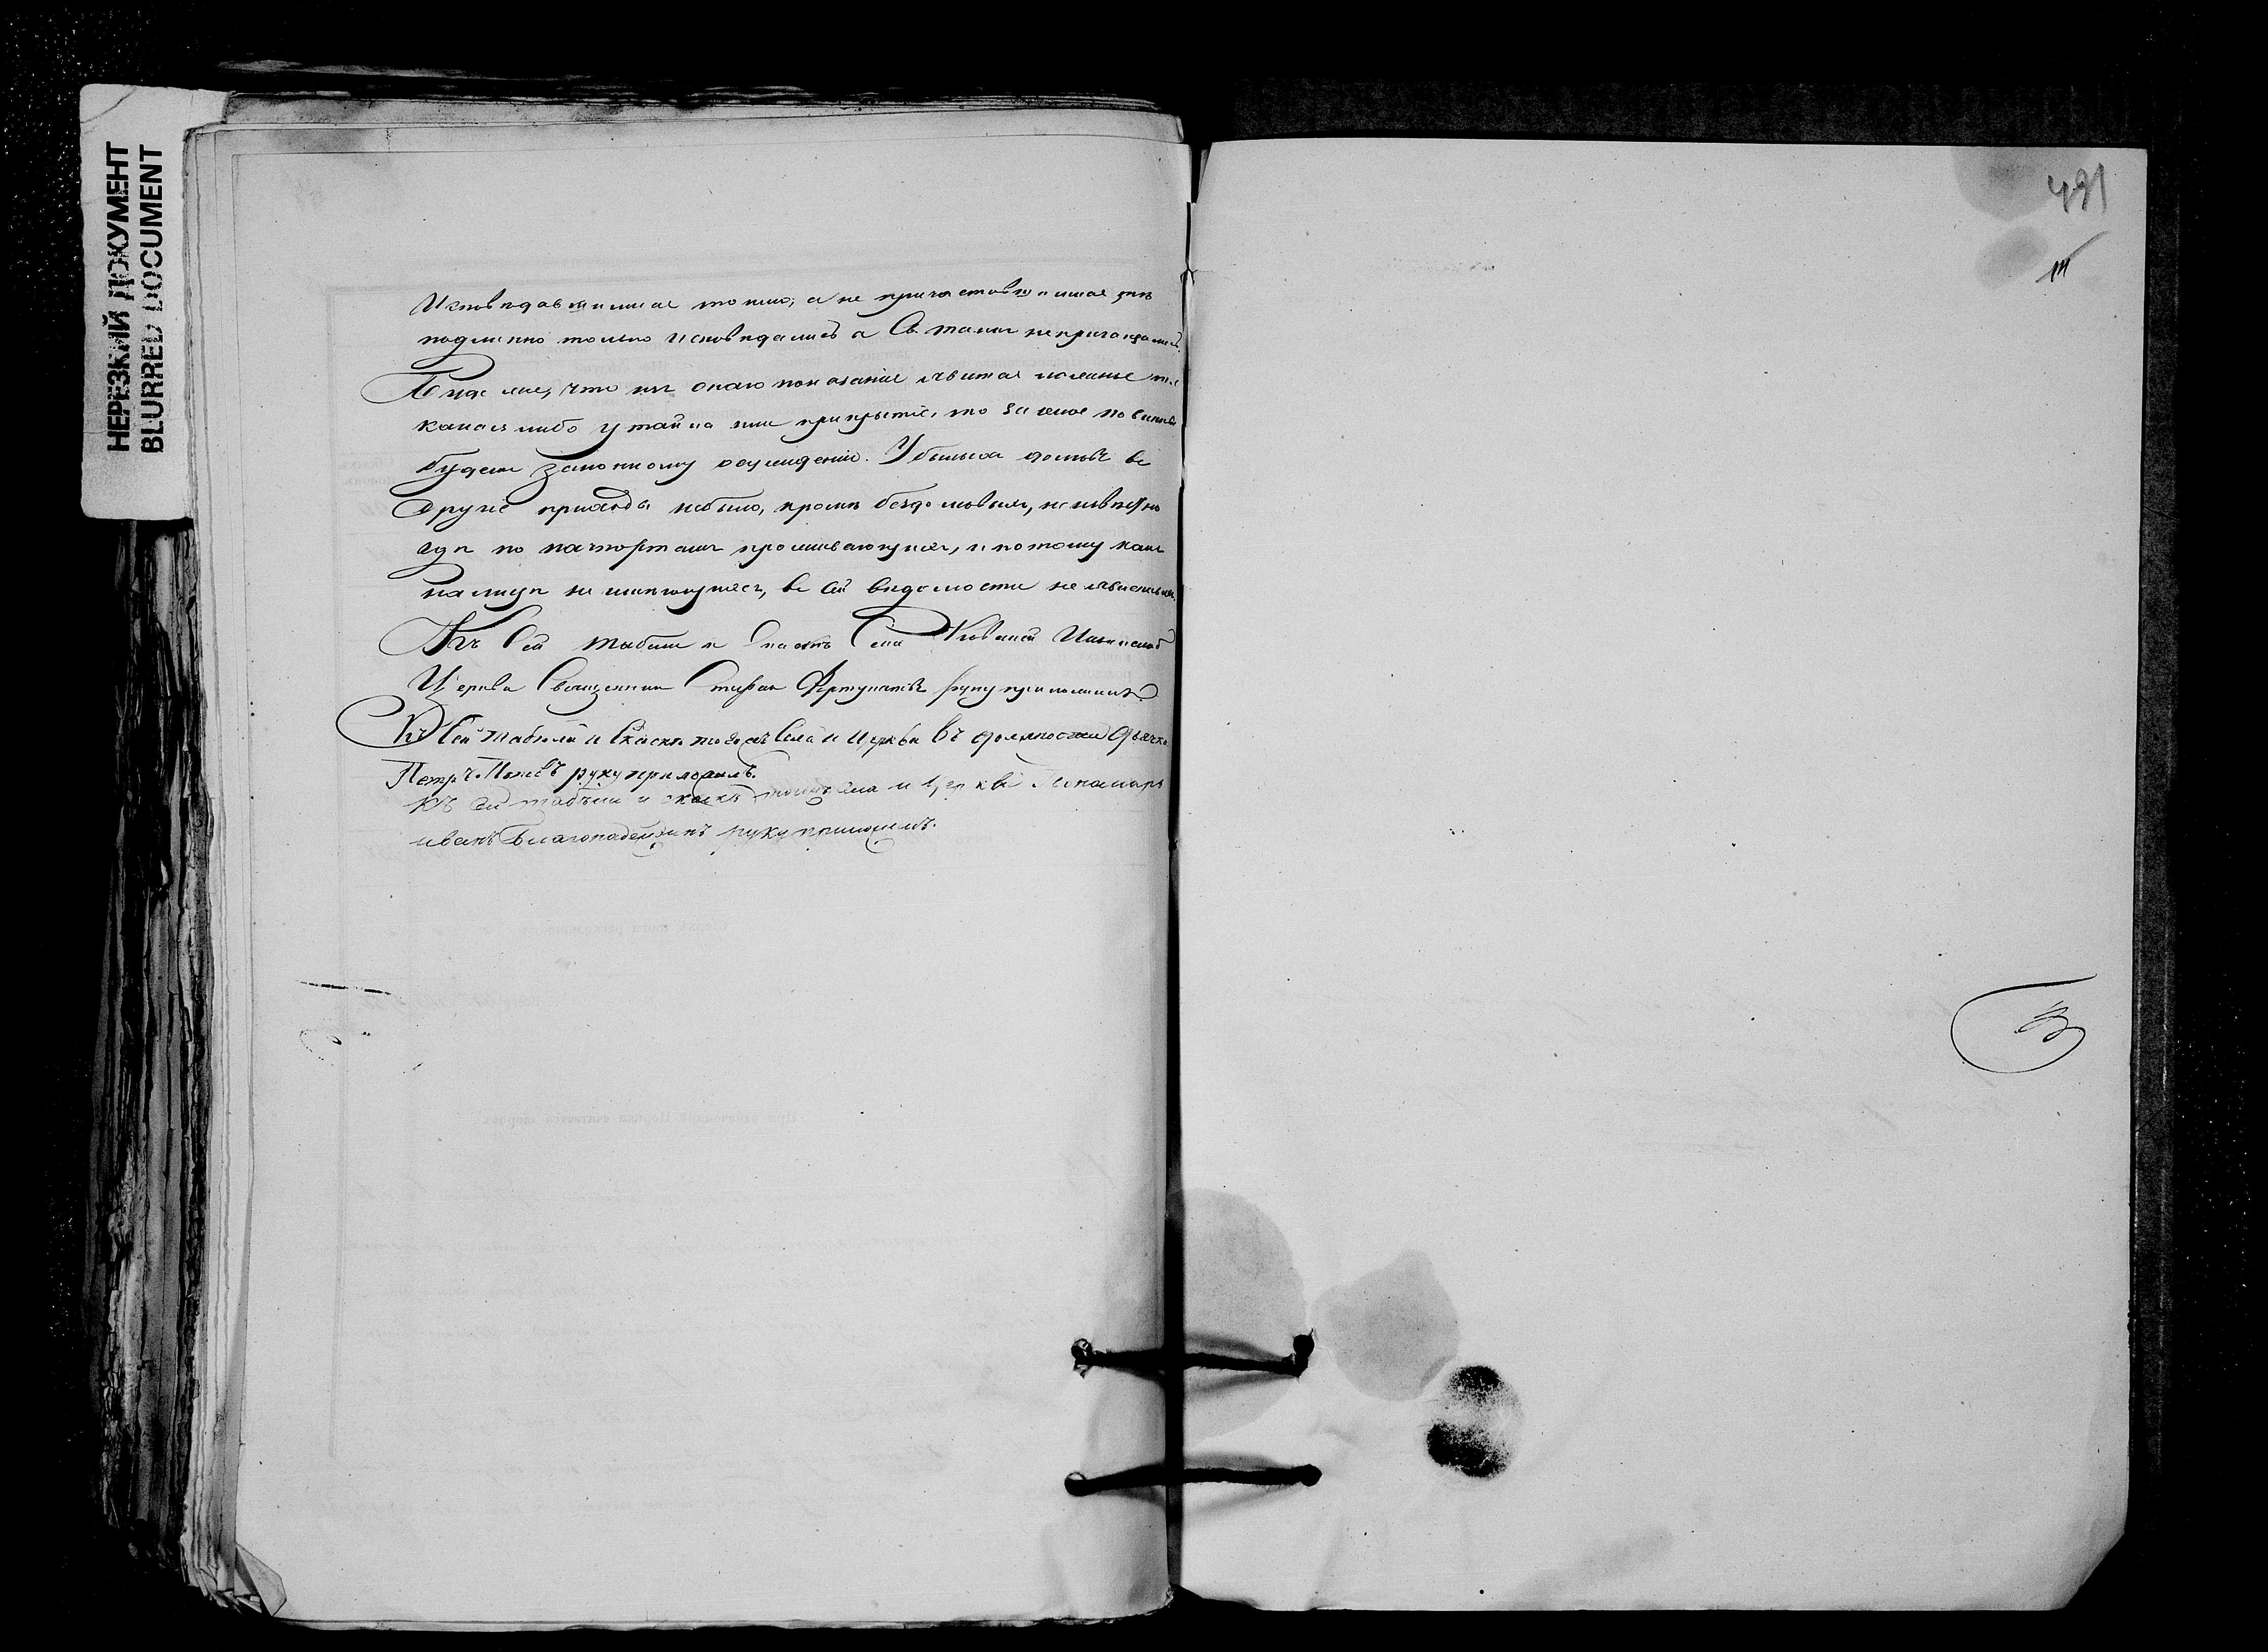 НЕРЕЗКИЙ ДОКУМЕНТ
BLURRED DOCUMENT
Исповѣдавшимися токмо, а не причастовшимися тѣ
подлинно только исповѣдались а Св. таинъ непричащались.
Буде же, что въ оном показаніе явится ложное или
какая либо утайка или прикрытіе, то за оное повиненъ
будетъ законному осужденію. Убылыхъ домовъ въ
другіе приходы небыло, кромѣ бездомовыхъ, неизвѣстно
гдѣ по пачпортамъ проживающихъ, и потому какъ
налицѣ не имѣющихся, въ сей вѣдомости не
Къ Сей табели и Скаскѣ Села Ильинской
Церкви Священник Стефан Фортунатовъ руку приложилъ
Къ Сей табели и Скаскѣ тогожъ Села и Церкви въ должности Дьячка
Петръ руку приложилъ.
Къ сей табели и скаскѣ тогожъ села и Церкви Пономарь
иванъ Благонадеждинъ руку приложилъ.
491